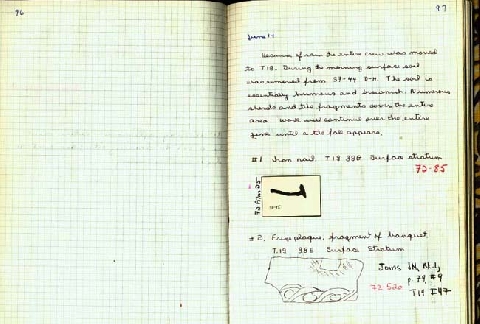 96
97
June 11
the entire crew was moved
to T19. During the morning surface soil
was removed from 39-44 D-H. The soil is
essentially humus and brownish. Numerous
sherds and tile fragments cover the entire
area. Work will continue over the entire
area until a tile fall appears.
#1 Iron nail T19 39G Surface stratum
72-85
#2, Frieze plaque, fragment of banquet,
T19 39G Surface Stratum
72 520
p. 79, #9
T19 #47